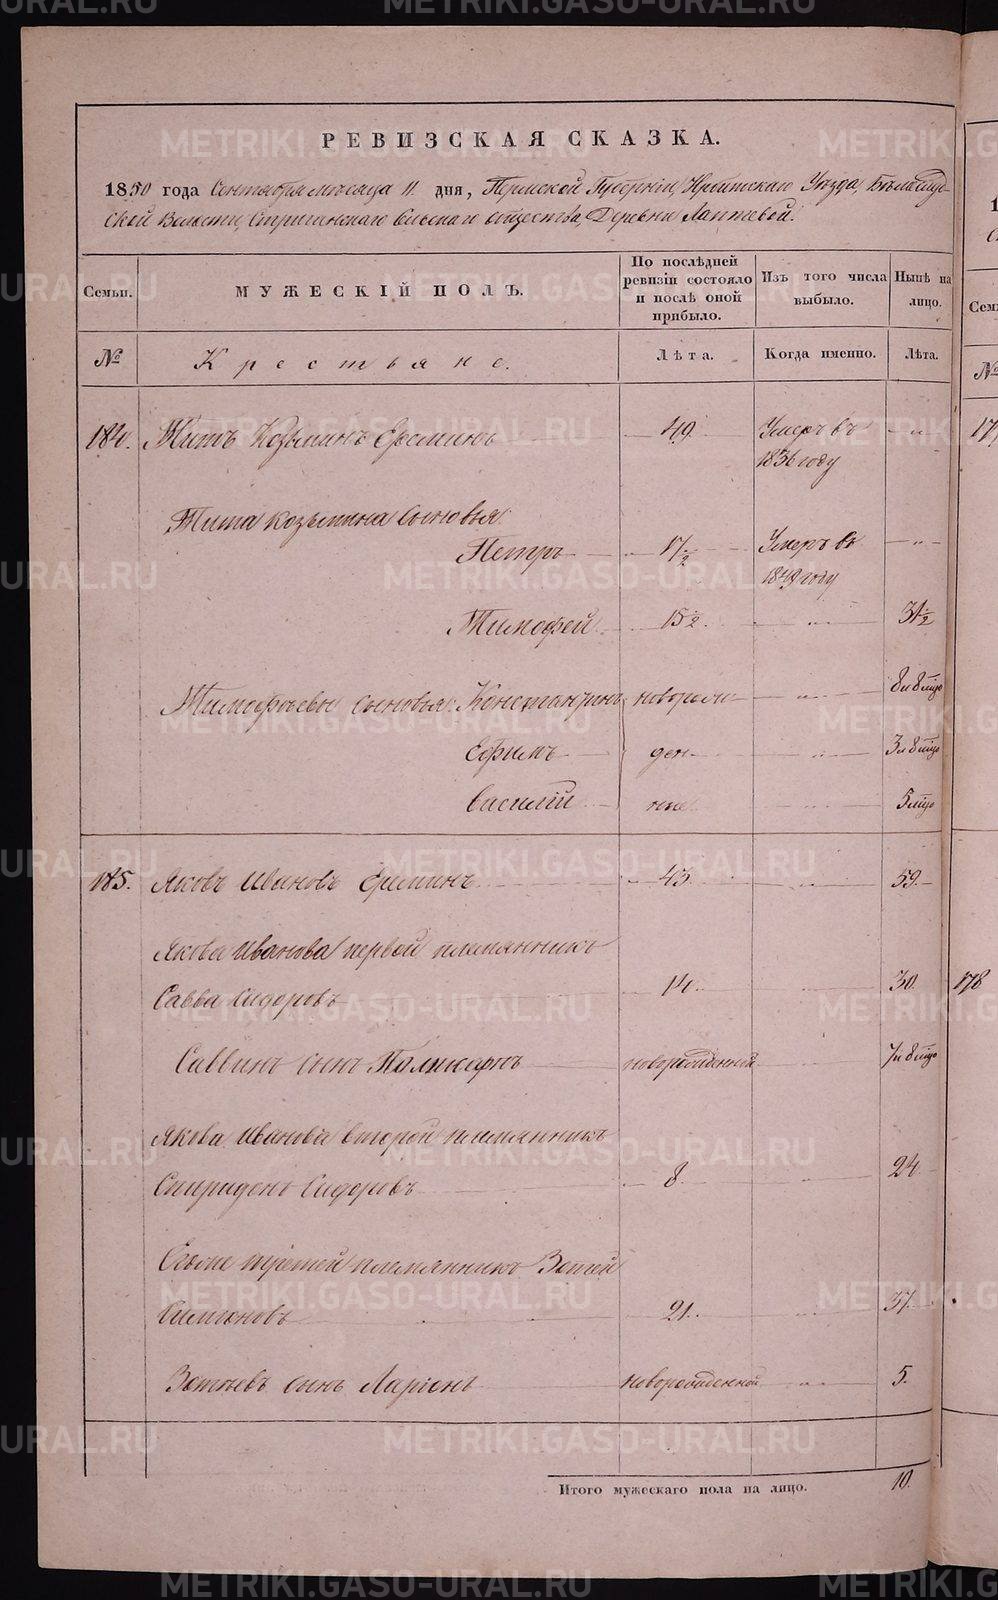 РЕВИЗСКАЯ СКАЗКА.
1850 года Сентября месяца 11 дня, Пермской Губерніи, Ирбитскаго Уѣзда, Бѣлослуд-
ской Волости, Стриганскаго Сельскаго общества, Деревни Лаптевой.
Семьи. МУЖЕСКІЙ ПОЛЪ. По послѣдней ревизіи состояло и послѣ оной прибыло. Изъ того числа выбыло. Нынѣ на лицо.
№ Крестьяне. Лѣта. Когда именно. Лѣта.
184. Титъ Козьминъ Ереминъ 49 Умеръ въ 1836 году
Тита Козьмина Сыновья:
Петръ 17½ Умеръ въ 1849 году
Тимофей 15½ 31½
Тимофѣевы сыновья: Константинъ новорож- 8 и 8 мцо
Ефимъ ден- 3 и 8 мцо
Василій ные 5 мцо
185. Яковъ Ивановъ Ереминъ 43 59
Якова Иванова первой племянникъ
Савва Сидоровъ 14 30
Саввинъ сынъ Поликарпъ новорожденной 7 и 8 мцо
Якова Иванова второй племянникъ
Спиридонъ Сидоровъ 8 24
Егоже третей племянникъ Зотей
Симоновъ 21 37
Зотеевъ сынъ Ларіонъ новорожденной 5.
Итого мужескаго пола на лицо. 10.
178
METRIKI.GASO-URAL.RU